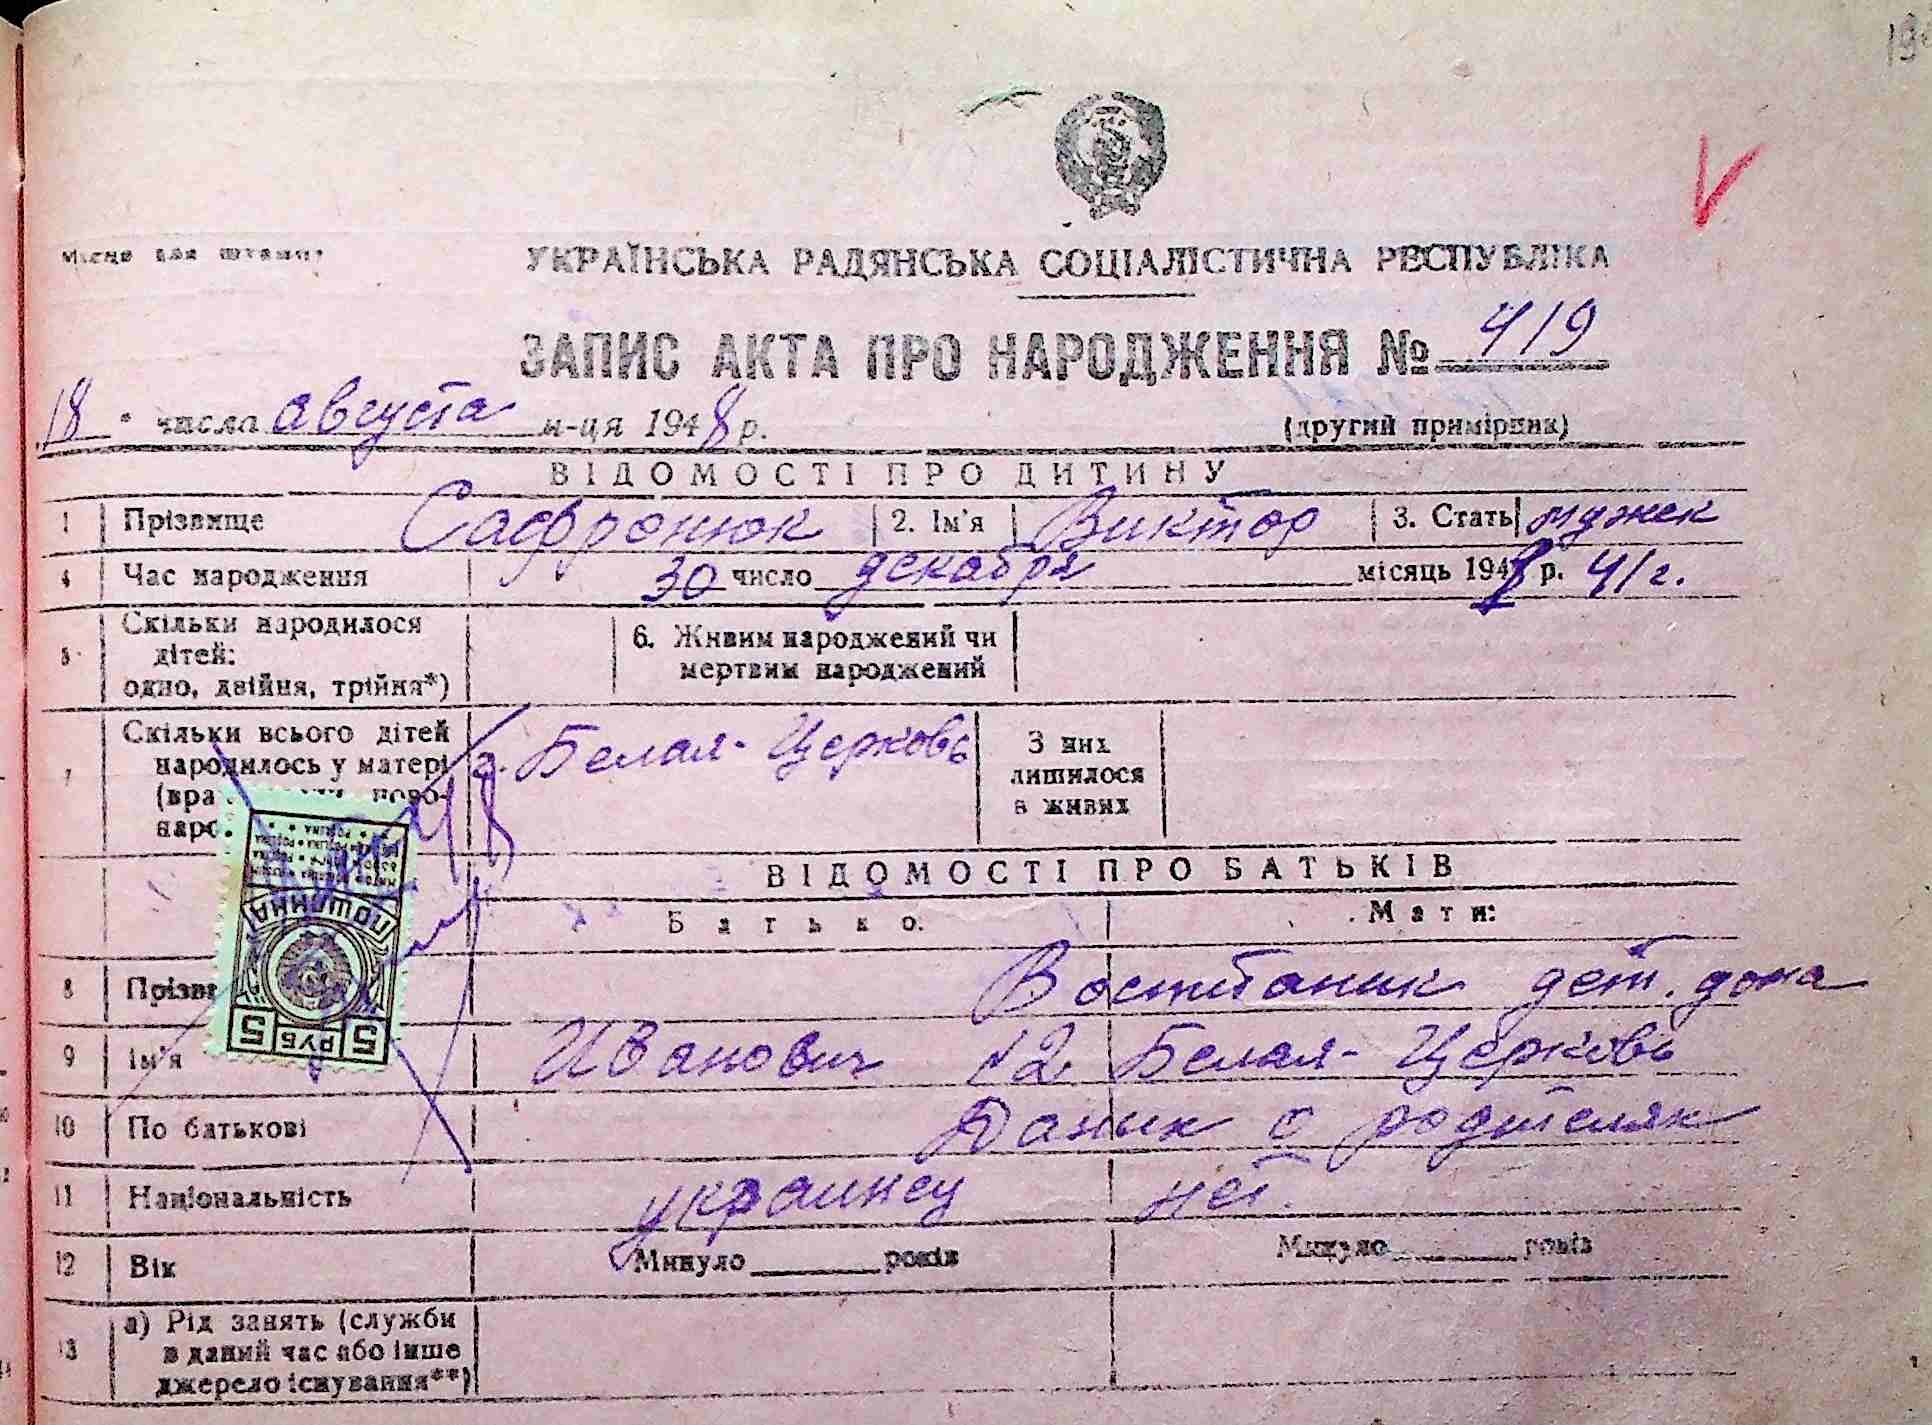 19
Місце для штампу
УКРАЇНСЬКА РАДЯНСЬКА СОЦІАЛІСТИЧНА РЕСПУБЛІКА
ЗАПИС АКТА ПРО НАРОДЖЕННЯ № 419
18 числа августа м-ця 1948 р. (другий примірник)
ВІДОМОСТІ ПРО ДИТИНУ
1 Прізвище Сафронюк 2. Ім'я Виктор 3. Стать мужск
4 Час народження 30 число декабря місяць 194 р. 41 г.
5 Скільки народилося дітей: одно, двійня, трійня*) 6. Живим народжений чи мертвим народжений
7 Скільки всього дітей народилось у матері г. Белая-Церковь З них лишилося в живих
ВІДОМОСТІ ПРО БАТЬКІВ
Батько. Мати:
8 Воспитаник дет. дома
9 Ім'я Иванович №2 Белая-Церковь
10 По батькові Даных о родителях
11 Національність украинец нет.
12 Вік Минуло років Минуло років
13 а) Рід занять (служби в даний час або інше джерело існування**)
ПОШЛИНА
5 РУБ 5